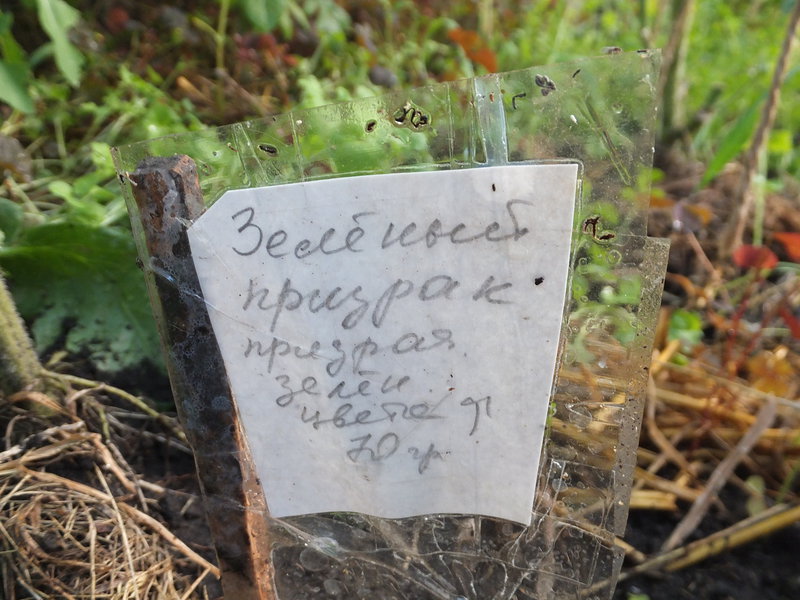 Зелёный
призрак
призрая
зелён.
цвета
70 гр.